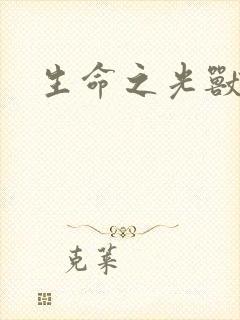 生命之光獸
克萊